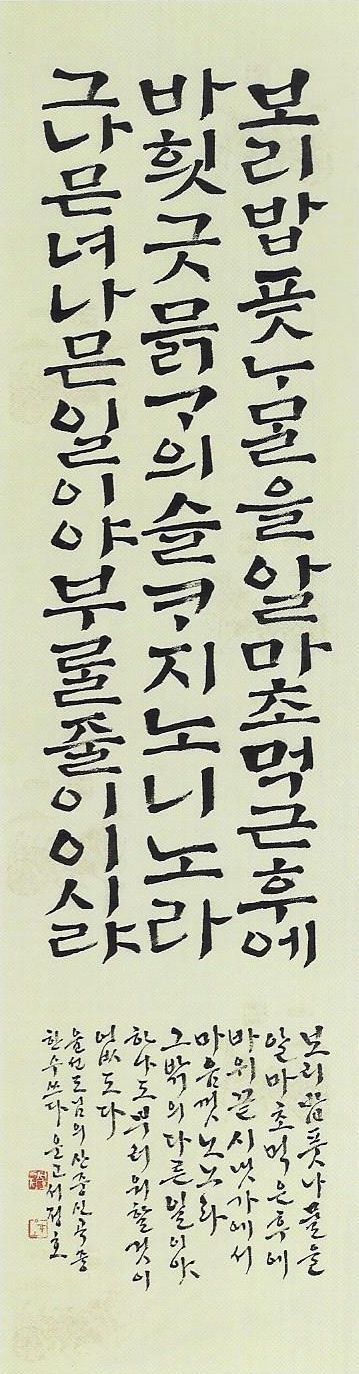 보리밥픗ᄂᆞᄆᆞᆯ을알마초먹근후에
바흿긋믉ᄀᆞ의슬ᄏᆞ지노니노라
그나믄녀나믄일이야부ᄅᆞᆯ줄이이시랴
보리밥풋나물을
알마초먹은후에
바위끝시냇가에서
마음껏노노라
그밖의다른일이야
하나도부러워할것이
없도다
윤선도님의산중신곡중
한수쓰다 운고서정호